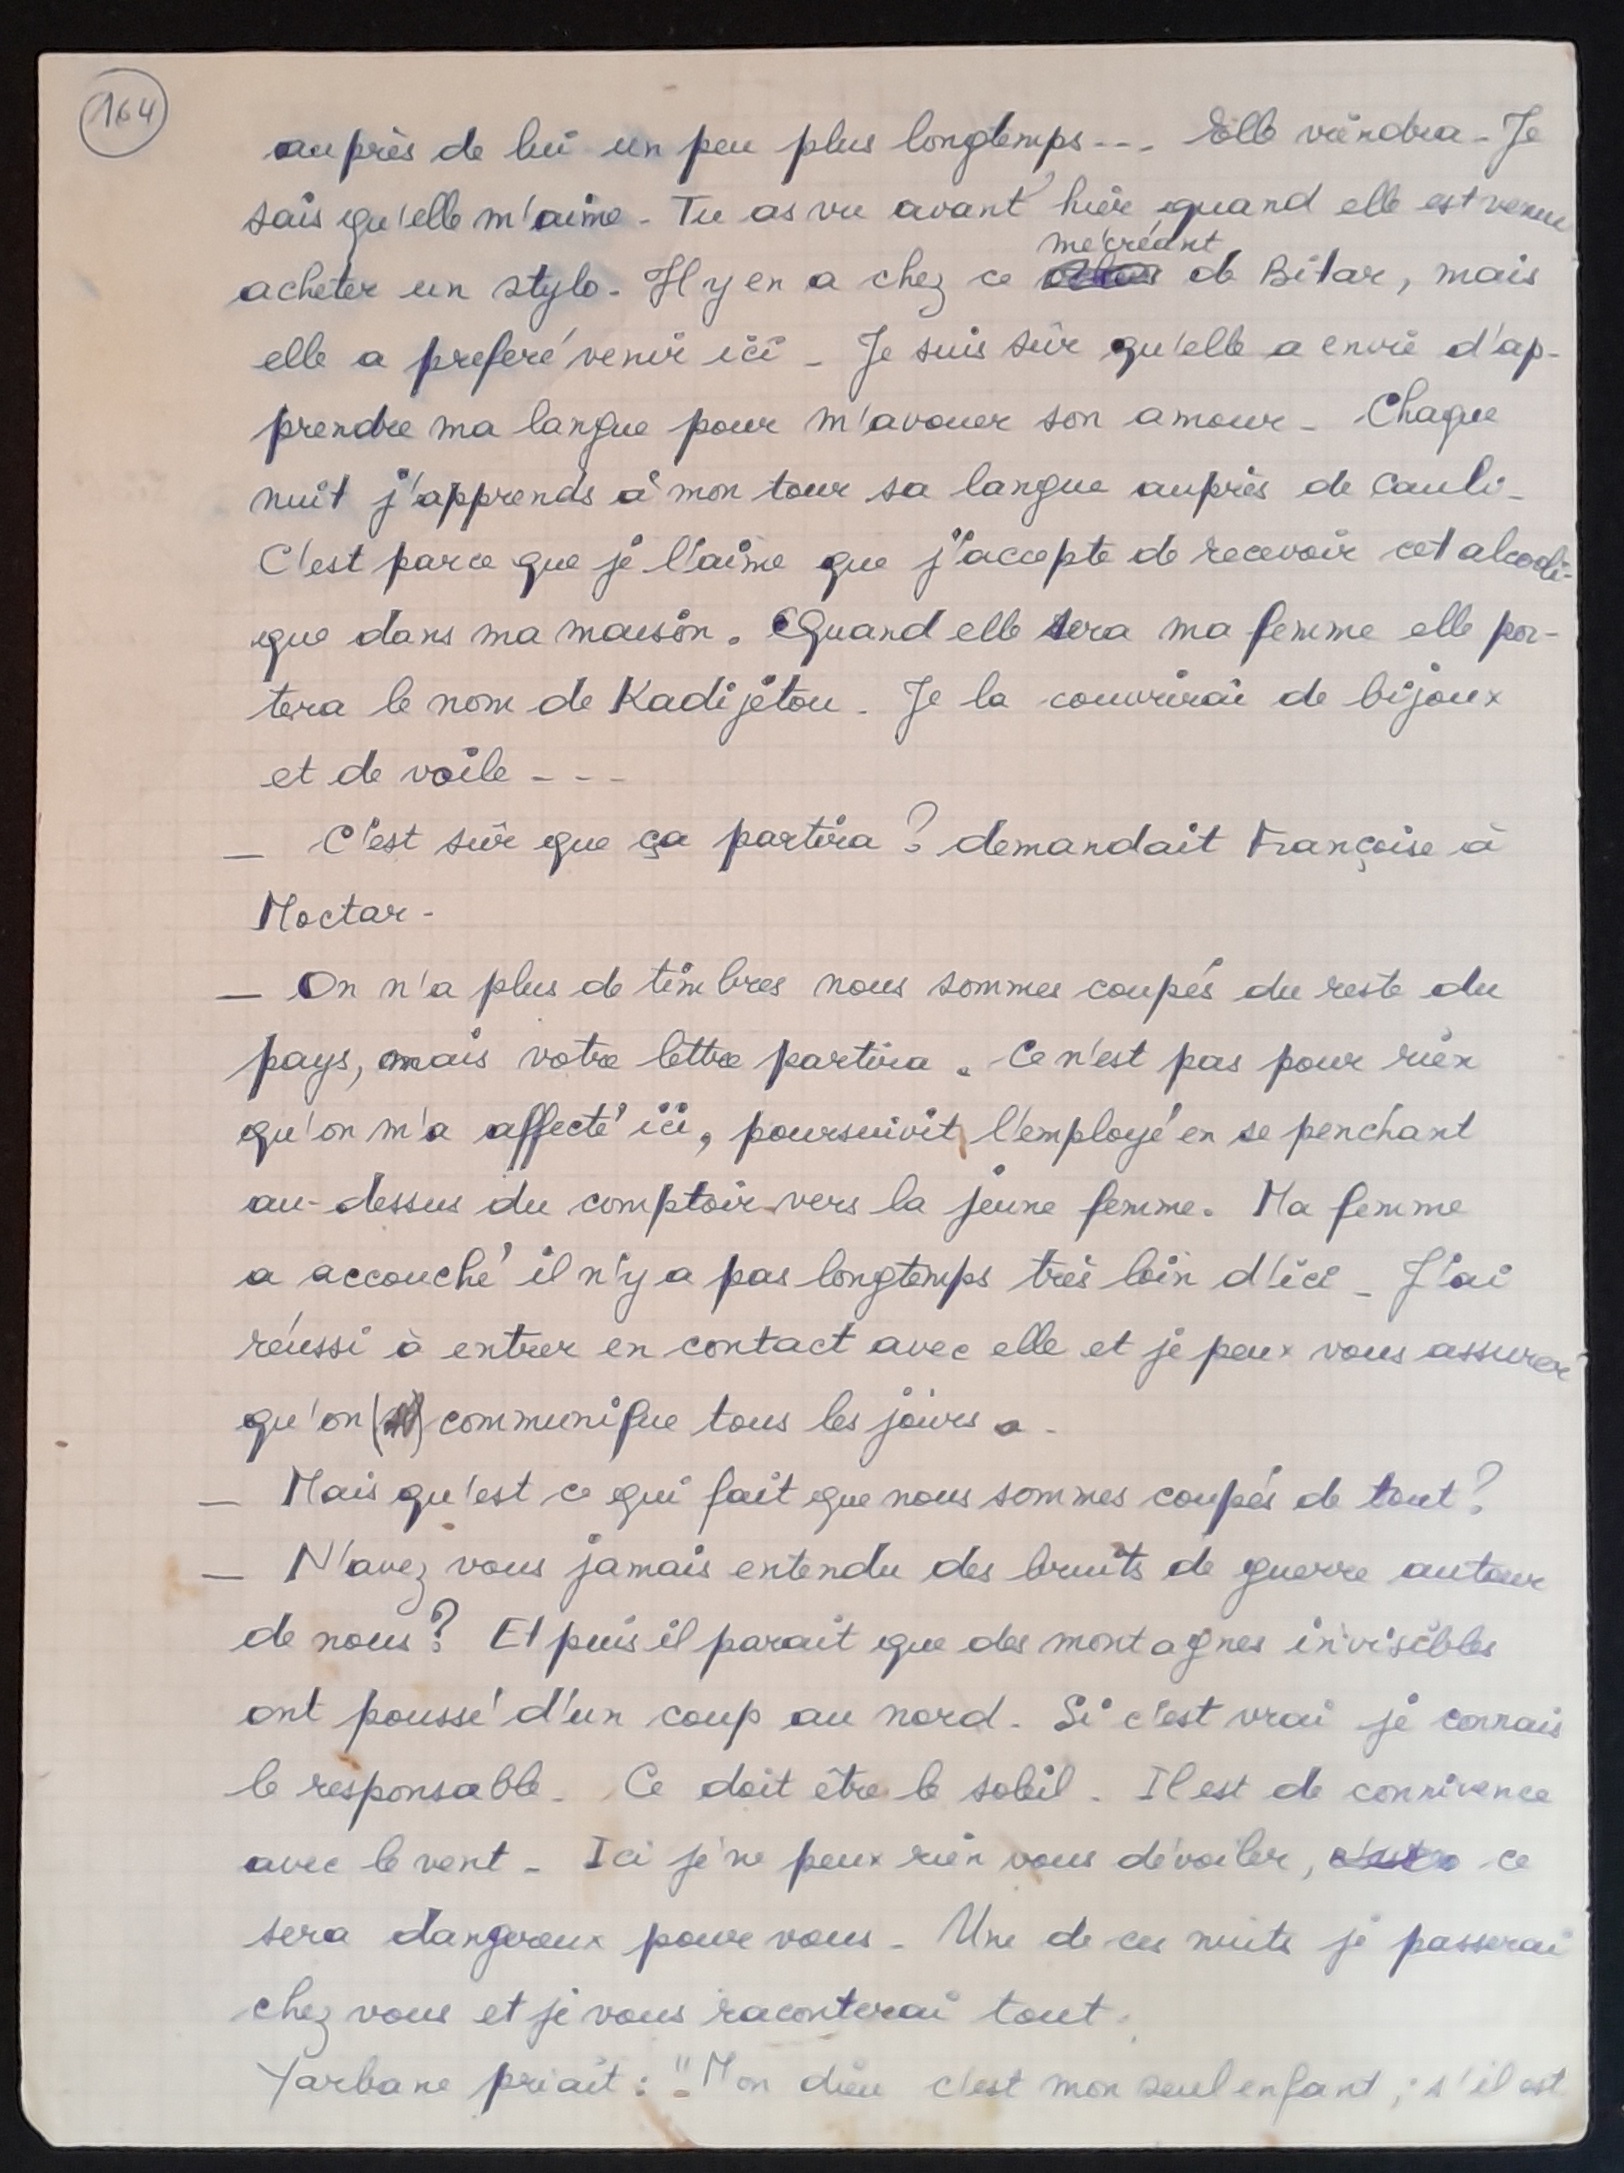 164
auprès de lui un peu plus longtemps--- Elle viendra - Je
sais qu'elle m'aime - Tu as vu avant hier quand elle est venue
mécréant
acheter un stylo - Il y en a chez ce de Bitar, mais
elle a preferé venir ici - Je suis sûr qu'elle a envie d'ap-
prendre ma langue pour m'avouer son amour - Chaque
nuit j'apprends à mon tour sa langue auprès de Cauli -
C'est parce que je l'aime que j'accepte de recevoir cet alcooli-
que dans ma maison. Quand elle sera ma femme elle por-
tera le nom de Kadijétou - Je la couvrirai de bijoux
et de voile - - -
— C'est sûr que ça partira ? demandait Françoise à
Moctar -
— On n'a plus de timbres nous sommes coupés du reste du
pays, mais votre lettre partira. Ce n'est pas pour rien
qu'on m'a affecté ici, poursuivit l'employé en se penchant
au-dessus du comptoir vers la jeune femme. Ma femme
a accouché il n'y a pas longtemps très loin d'ici - J'ai
réussi à entrer en contact avec elle et je peux vous assurer
qu'on communique tous les jours.
— Mais qu'est ce qui fait que nous sommes coupés de tout ?
— N'avez vous jamais entendu des bruits de guerre autour
de nous ? Et puis il parait que des montagnes invisibles
ont poussé d'un coup au nord. Si c'est vrai je connais
le responsable - Ce doit être le soleil. Il est de connivence
avec le vent - Ici je ne peux rien vous dévoiler, ce
sera dangereux pour vous - Une de ces nuits je passerai
chez vous et je vous raconterai tout.
Yarbane priait : "Mon dieu c'est mon seul enfant ; s'il est